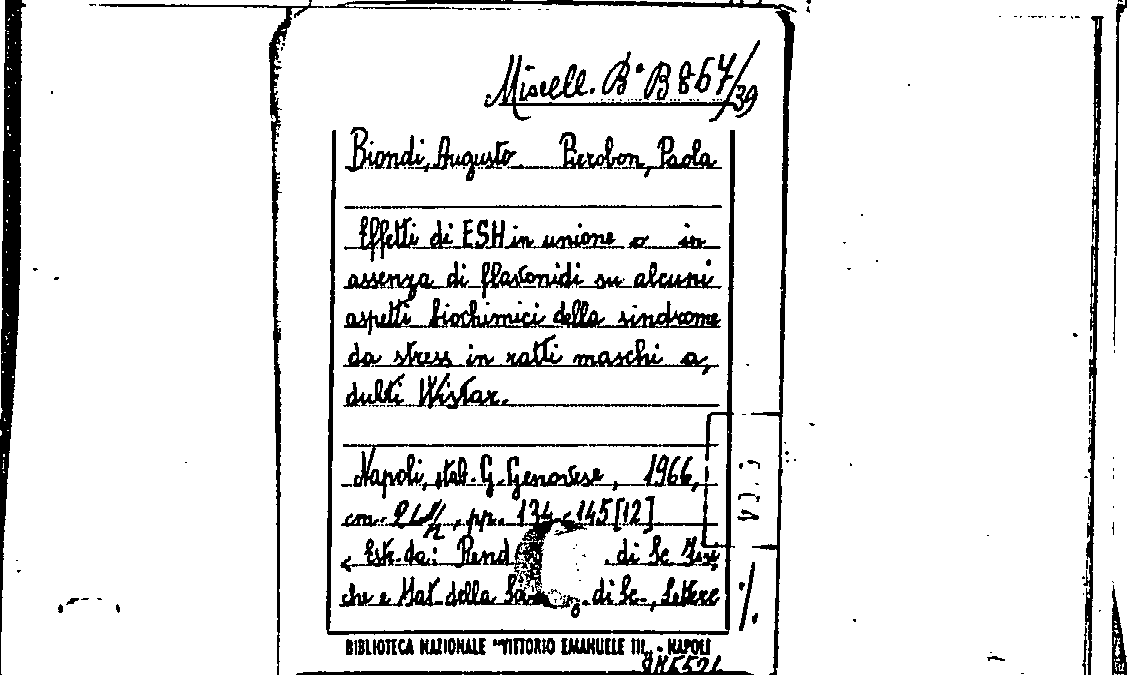 Miscell. B.a B 867/39
Biondi, Augusto Pierobon, Paola
Effetti di ESH in unione o in
assenza di flavonidi su alcuni
aspetti biochimici della sindrome
da stress in ratti maschi a,
dulti Wistar.
Napoli, stab. G. Genovese, 1966,
cm. , pp. 134-145 [12]
Estr. da: Rend di Sc.
che e Mat della di Sc., Lettere
./.
BIBLIOTECA NAZIONALE "VITTORIO EMANUELE III„ - NAPOLI